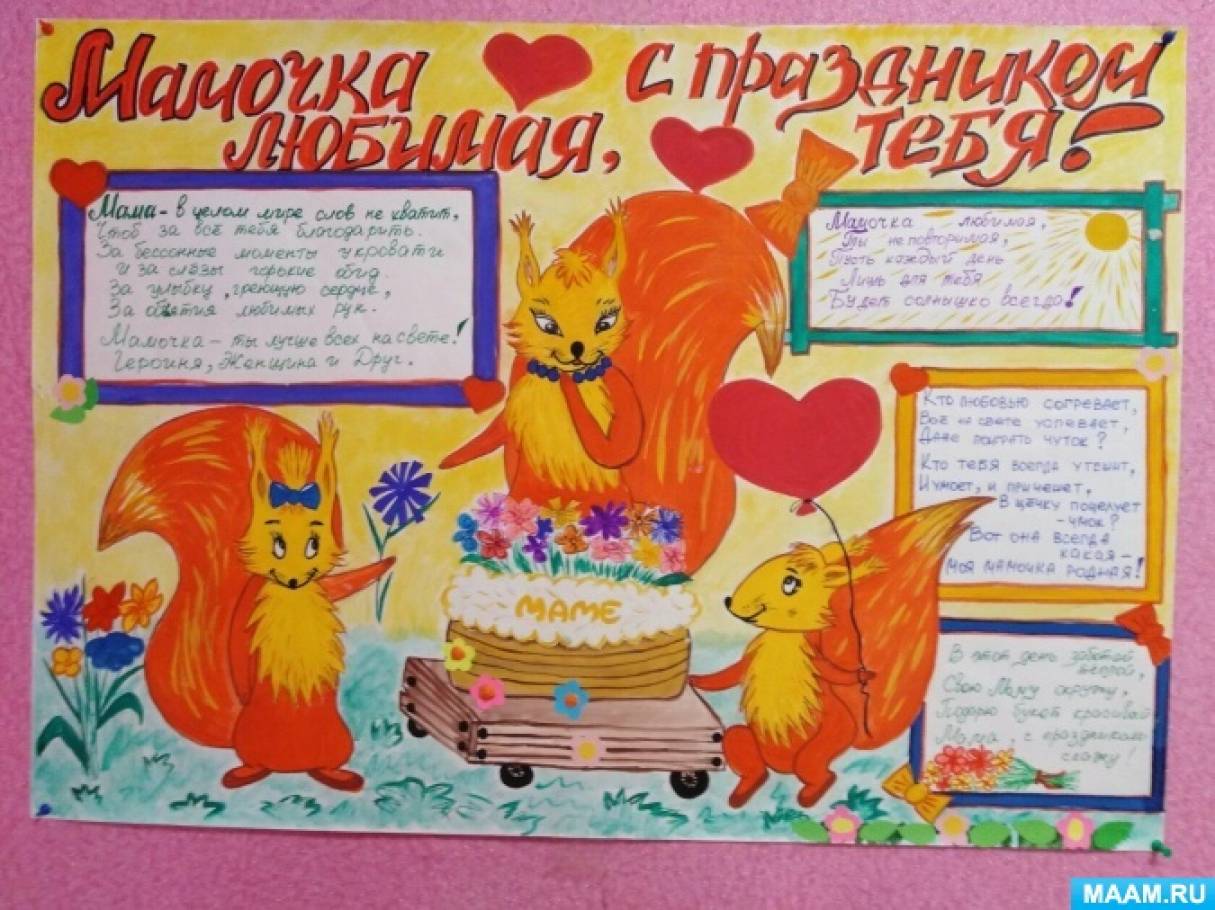 Мамочка
любимая,
с праздником
тебя!
Мама - в целом мире слов не хватит,
Чтоб за всё тебя благодарить.
За бессонные моменты у кровати
И за слёзы горькие обид.
За улыбку, греющую сердце,
За объятия любимых рук.
Мамочка - ты лучше всех на свете!
Героиня, Женщина и Друг.
Мамочка любимая,
Ты неповторимая,
Пусть каждый день
Лишь для тебя
Будет солнышко всегда!
Кто любовью согревает,
Всё на свете успевает,
Даже поиграть чуток?
Кто тебя всегда утешит,
И умоет, и причешет,
В щёчку поцелует
- чмок?
Вот она всегда
какая -
моя мамочка родная!
В этот день заботой
тёплой,
Свою Маму окружу,
Подарю букет красивый
Мама, с праздником
скажу!
МАМЕ
MAAM.RU